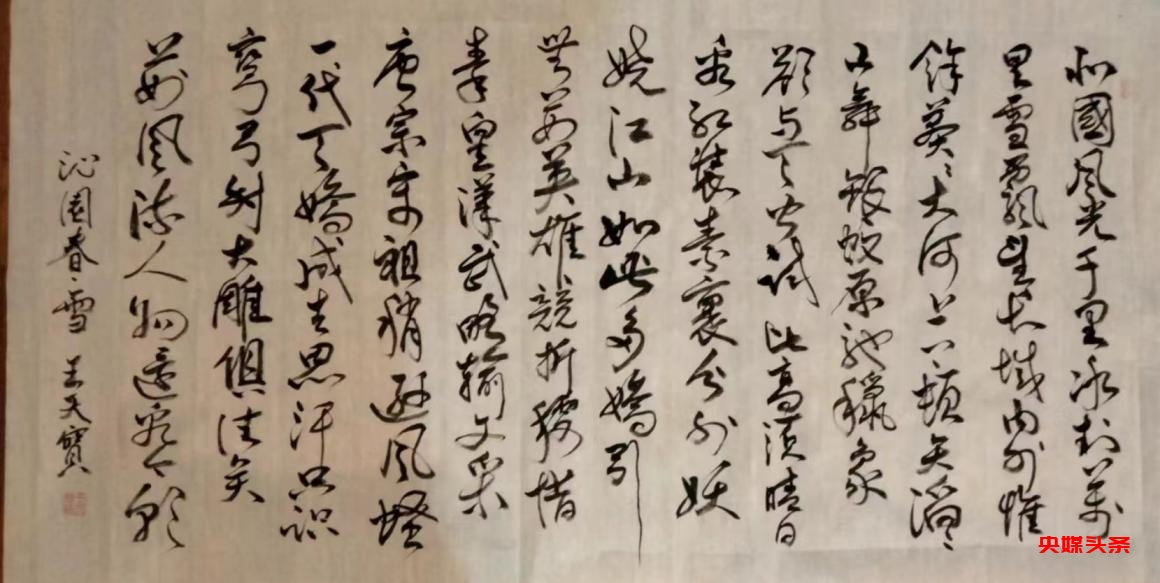 北國风光千里冰封萬
里雪飄望长城内外惟
餘莽〻大河上下顿失滔〻
山舞银蛇原驰蠟象
欲与天公试比高须晴日
看红装素裹分外妖
娆江山如此多嬌引
無数英雄競折腰惜
秦皇漢武略输文采
唐宗宋祖稍逊风骚
一代天嬌成吉思汗只识
弯弓射大雕俱往矣
数风流人物还看今朝
沁園春·雪 王天寶
央媒头条